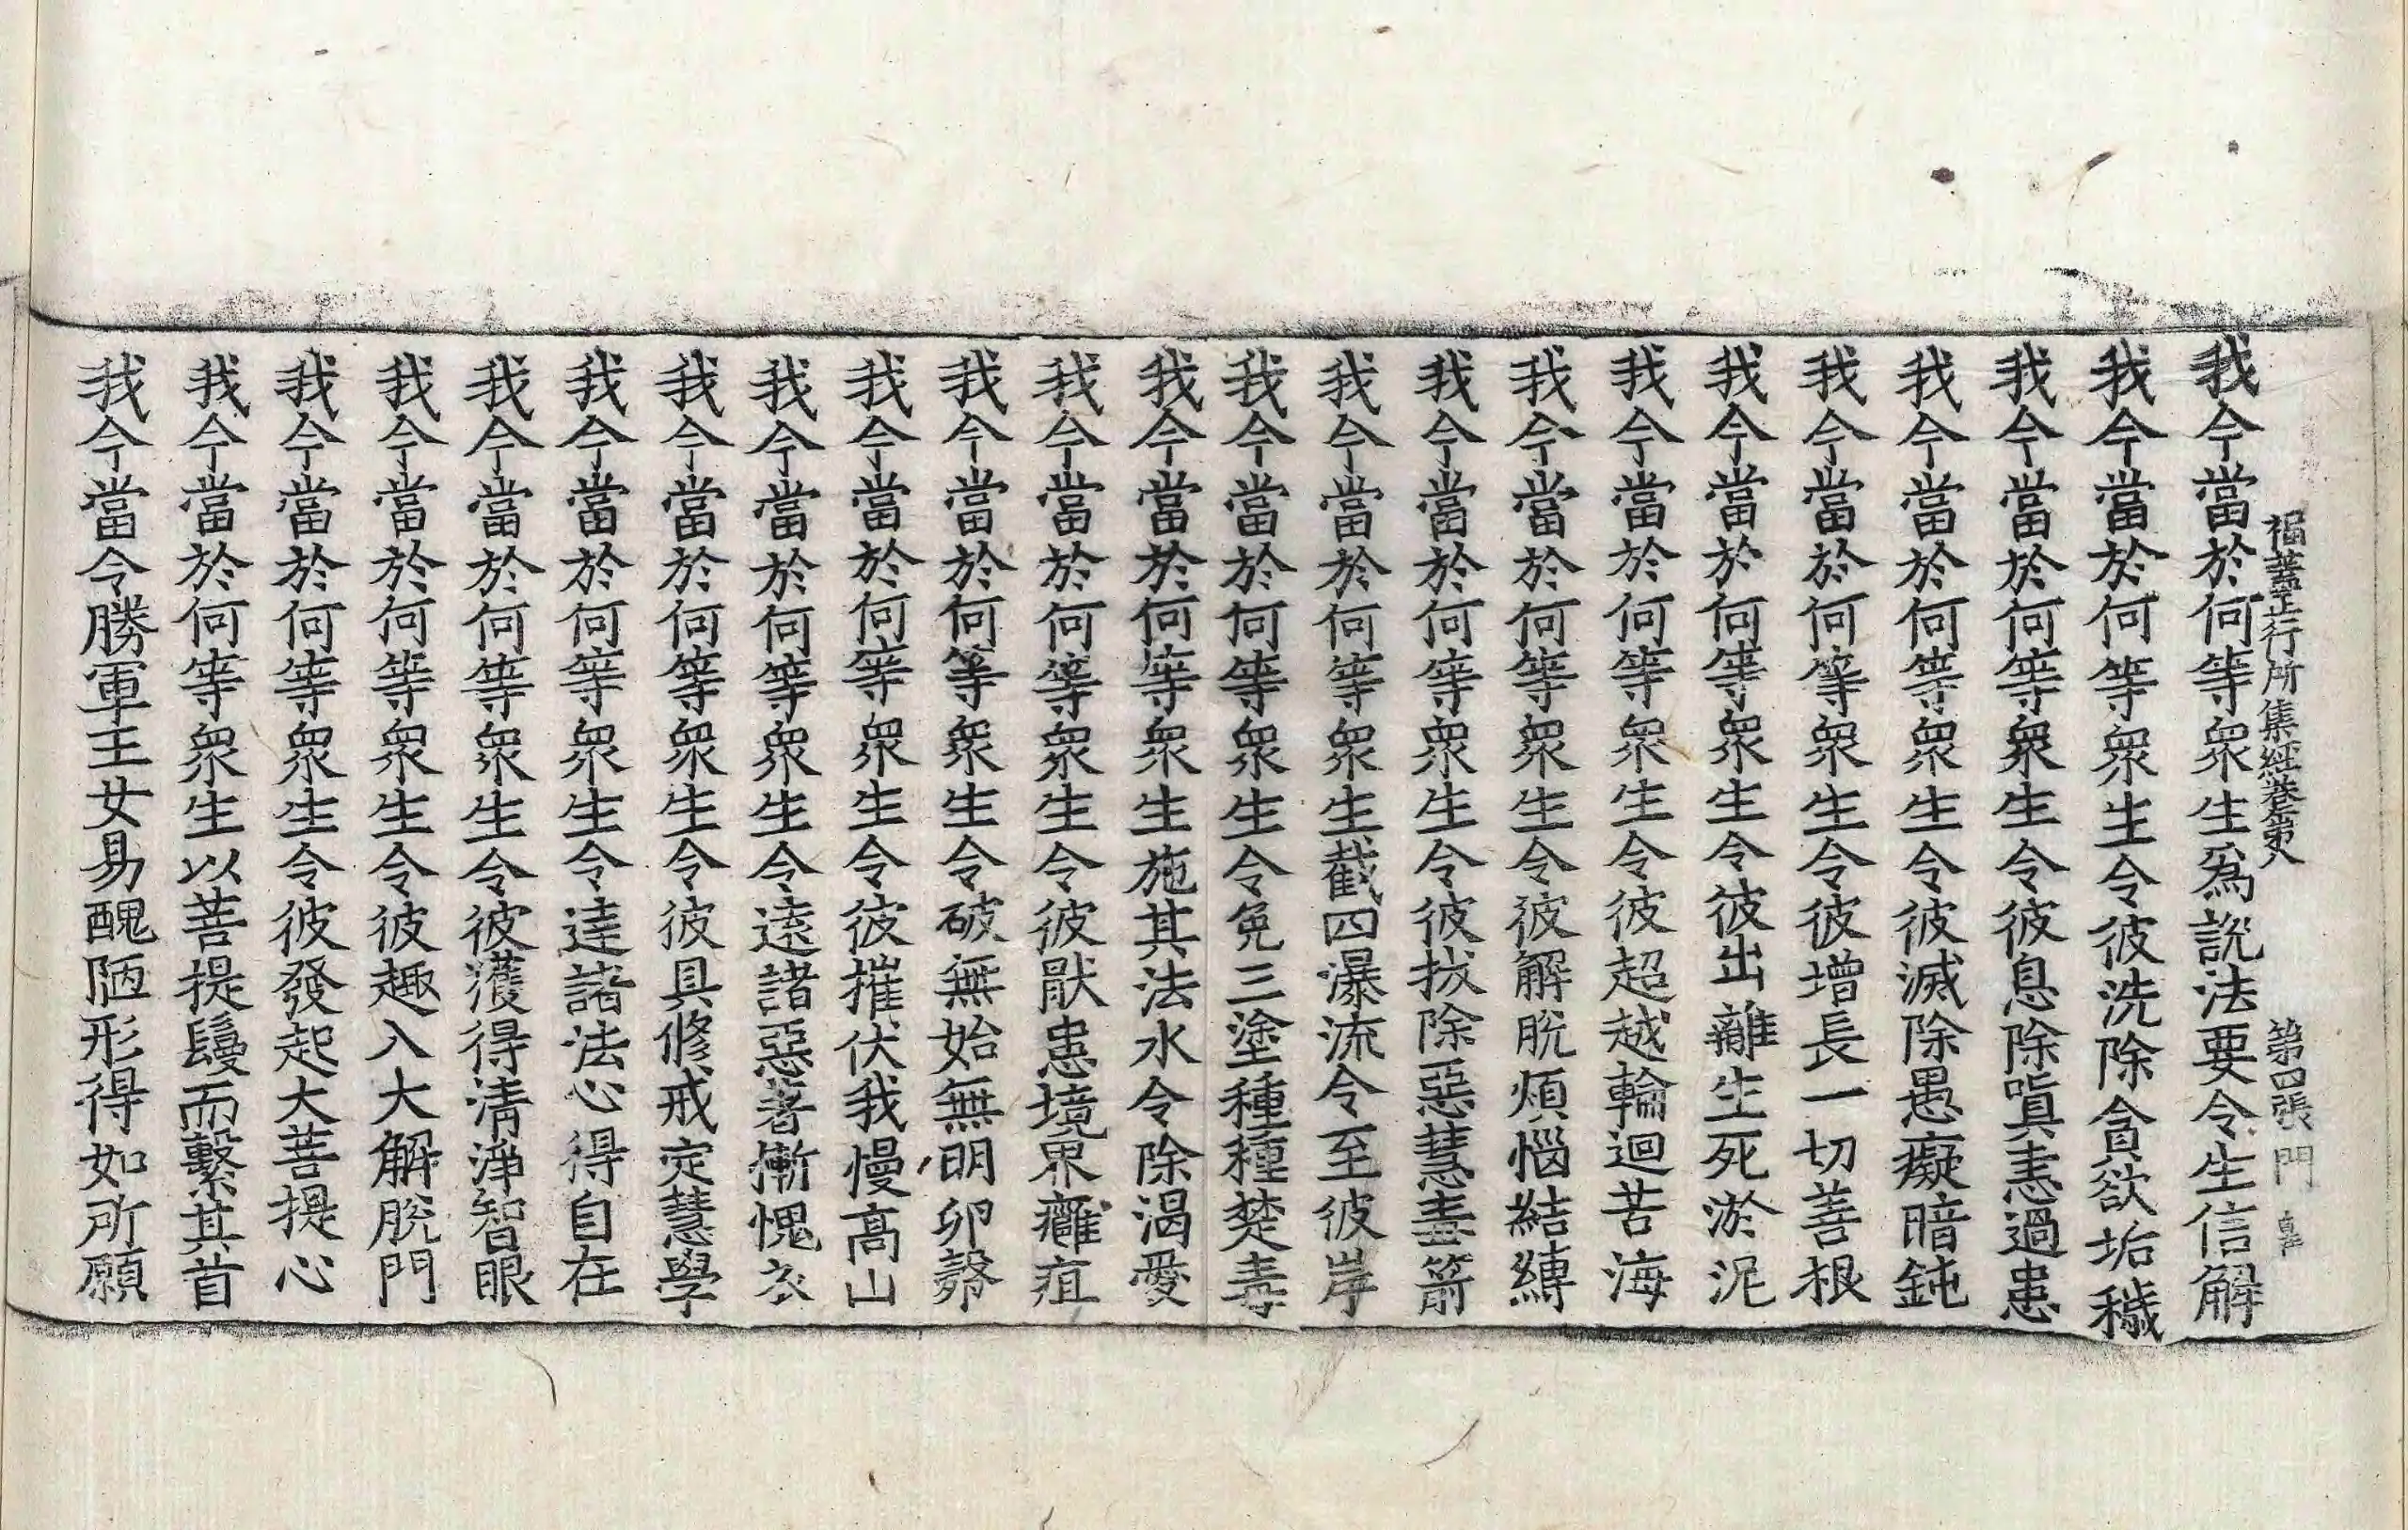 福蓋正行所集經卷第八 第四張 門
我今當於何等衆生爲說法要令生信解
我今當於何等衆生令彼洗除貪欲垢穢
我今當於何等衆生令彼息除嗔恚過患
我今當於何等衆生令彼滅除愚癡暗鈍
我今當於何等衆生令彼增長一切善根
我今當於何等衆生令彼出離生死淤泥
我今當於何等衆生令彼超越輪迴苦海
我今當於何等衆生令彼解脫煩惱結縛
我今當於何等衆生令彼拔除惡慧毒箭
我今當於何等衆生截四瀑流令至彼岸
我今當於何等衆生令免三塗種種楚毒
我今當於何等衆生施其法水令除渴愛
我今當於何等衆生令彼猒患境界癰疽
我今當於何等衆生令破無始無明卵㲉
我今當於何等衆生令彼摧伏我慢高山
我今當於何等衆生令遠諸惡著慚愧衣
我今當於何等衆生令彼具修戒定慧學
我今當於何等衆生令達諸法心得自在
我今當於何等衆生令彼獲得淸淨智眼
我今當於何等衆生令彼趣入大解脫門
我今當於何等衆生令彼發起大菩提心
我今當於何等衆生以菩提鬘而繫其首
我今當令勝軍王女易醜陋形得如所願